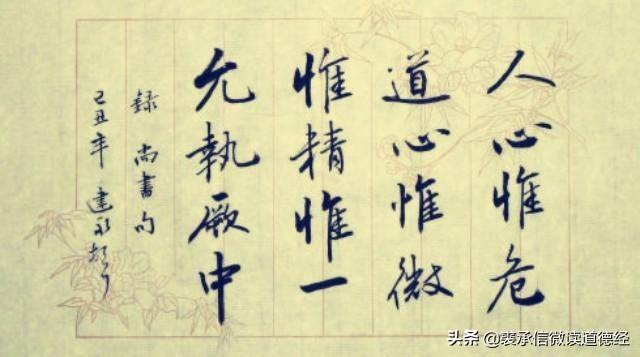 人心惟危
道心惟微
惟精惟一
允執厥中
録尚書句
己丑年建
头条 @裴承信微读道德经